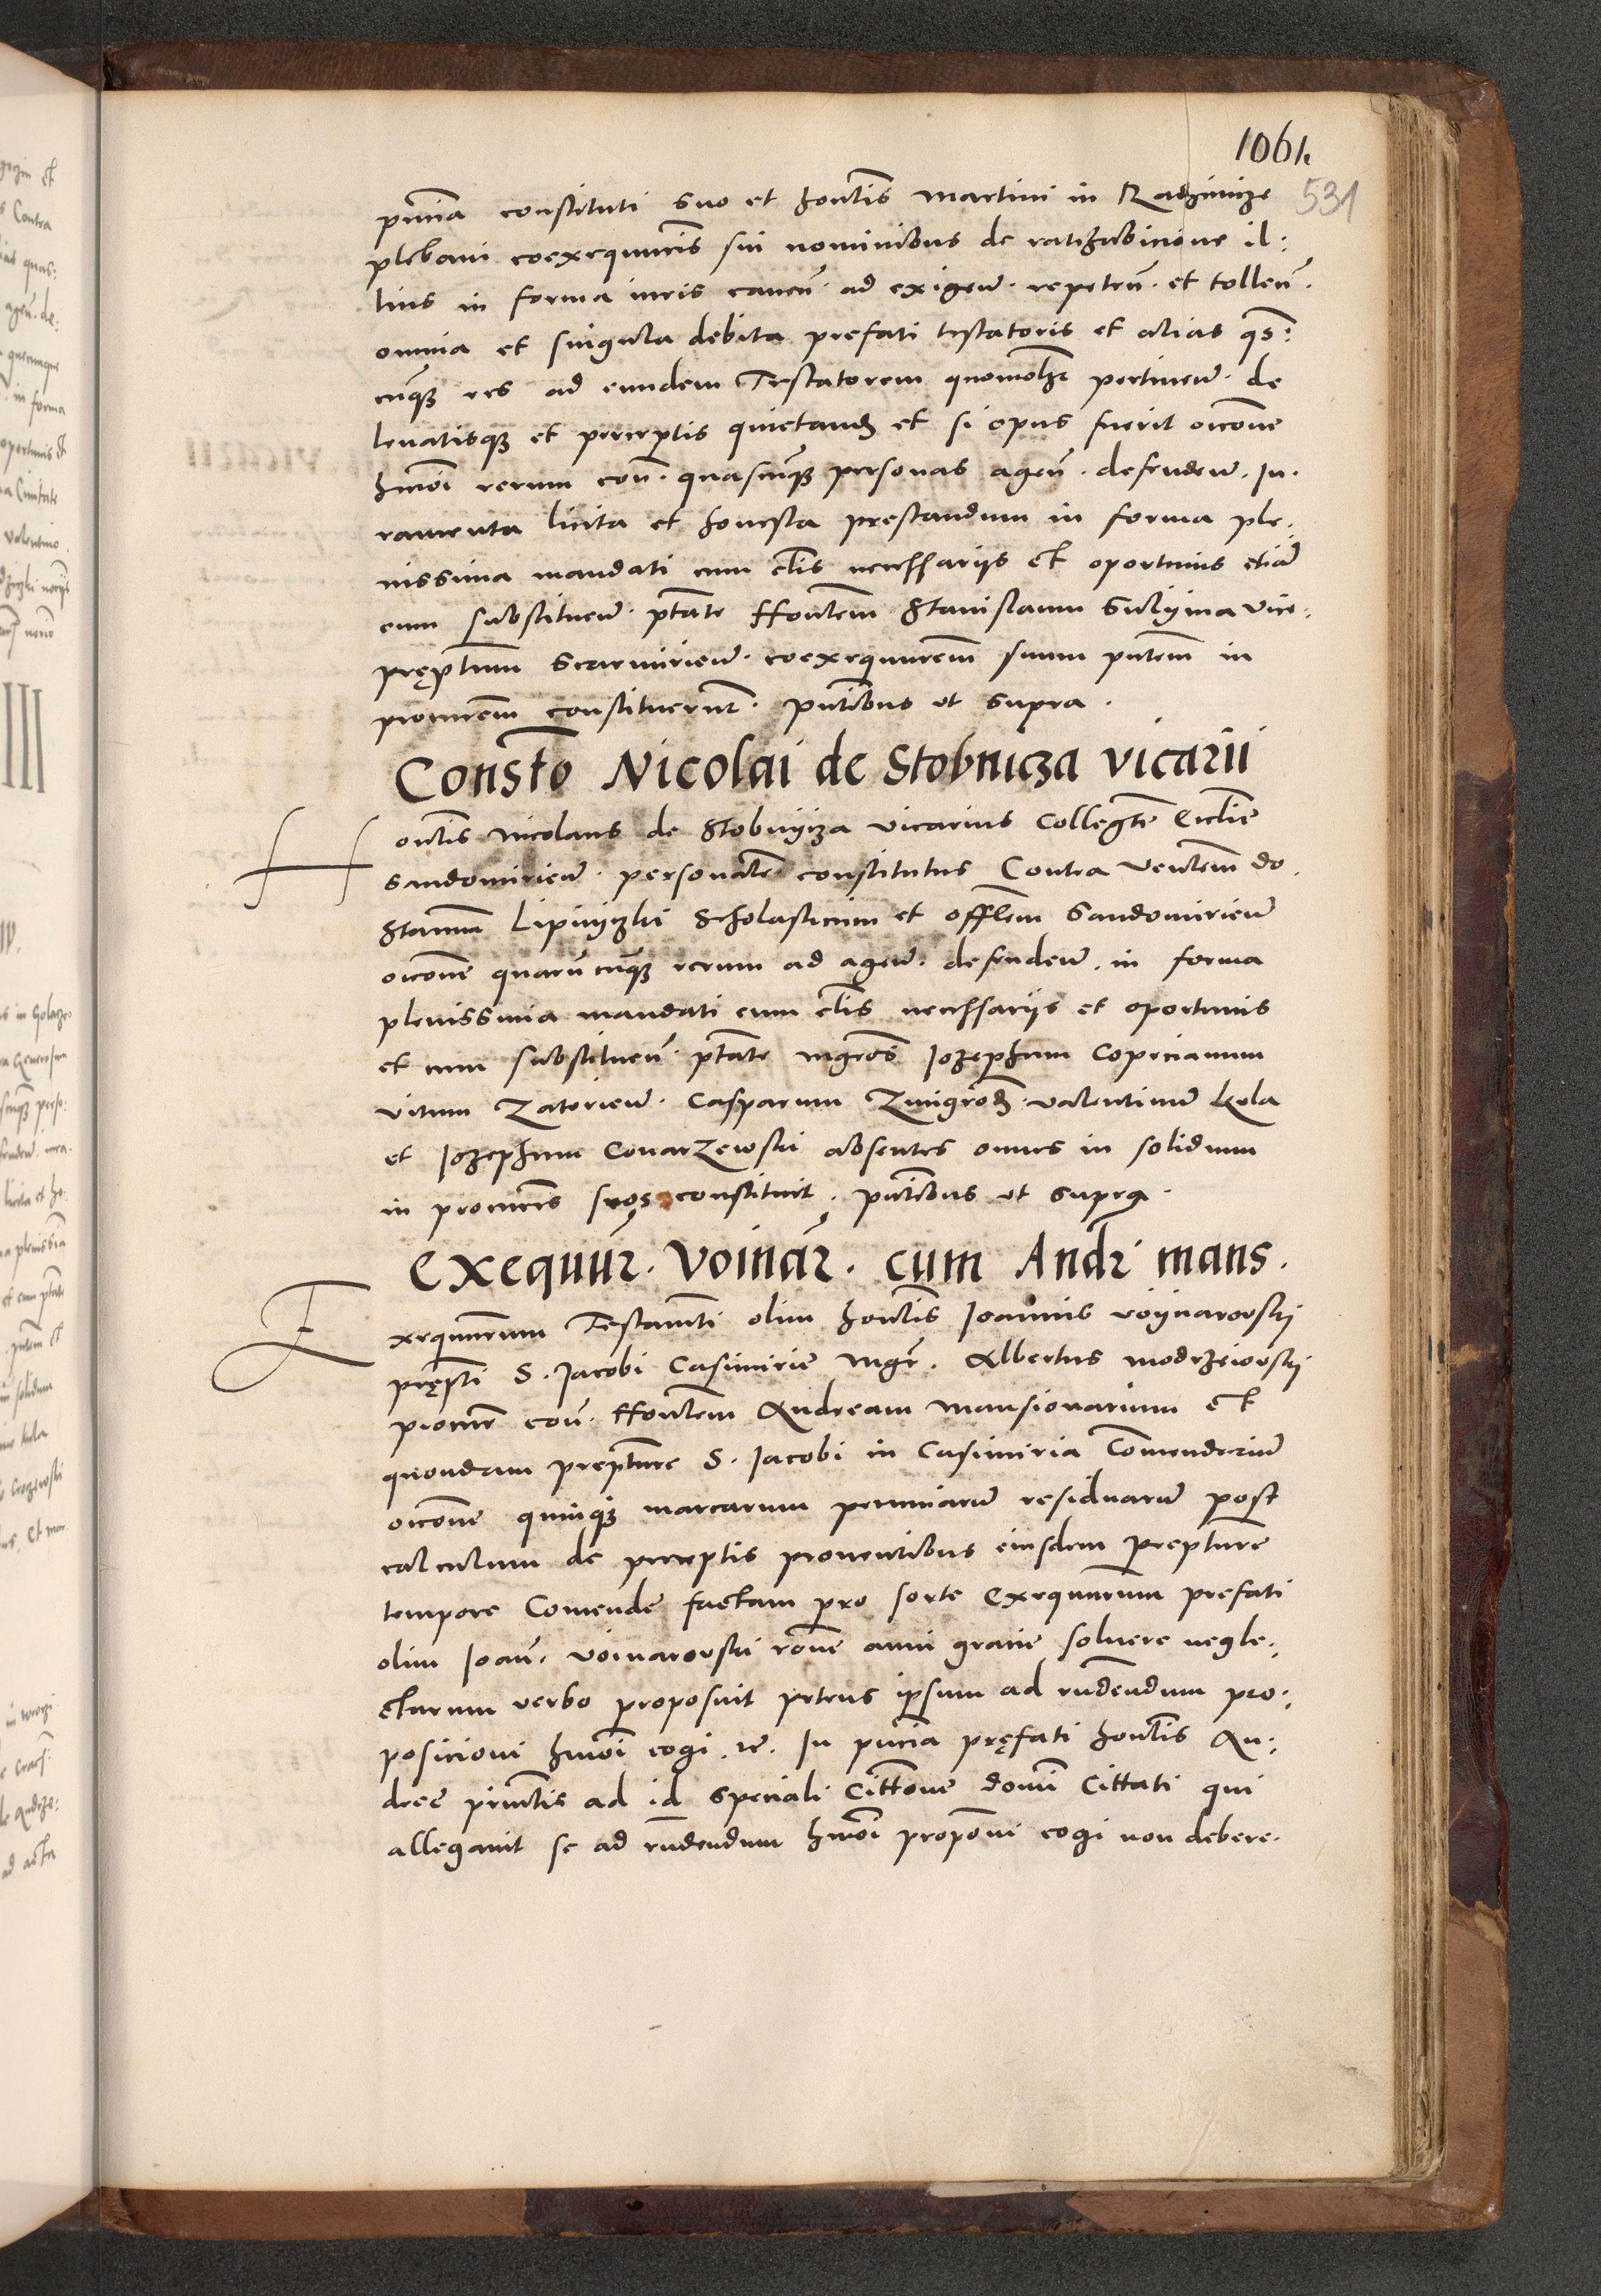 1061
531
pñcia constituti suo et hontis Martini in Radzimize
plebani coexequutis sui nominibus de ratihabicione il:
lius in forma iuris caveñ. ad exigeñ. repeteñ. et tolleñ.
omnia et singula debita prefati testatoris et alias qs:
cuqz res ad eundem Testatorem quomolzt pertineñ. de
levatisqz et perceptis quietandz et si opus fuerit occone
hmoi rerum coñ. quascuqz personas ageñ. defendeñ. Iu.
ramenta licita et honesta prestandum in forma ple.
nissima mandati cum clis necessariis et oportunis etia
cum substitueñ. ptate Hontem Stanislaum Sulyma Vice.
pręptum Scarmirieñ. coexequutem suum pntem in
procurem constituerunt. pntibus ut supra.
Constõ Nicolai de Stobnicza vicarii
Hontis Nicolaus de Stobnycza vicarius Collegte Ecclie
Sandomirieñ. personate constitutus Contra Ventem do.
Stanum Lipnyczki Scholasticum et offlem Sandomirieñ
occone quarucuqz rerum ad ageñ. defendeñ. in forma
plenissima mandati cum clis necessariis et oportunis
et cum substitueñ. ptate mgros Iozephum Copecianum
vitum Zatorieñ. Casparum Zmigrodz. Valentinum Kola
et Iozephum Covarzewski absentes omnes in solidum
in procures suos constituit. pntibus ut supra.
Exequut. Voinar. cum Andr mans.
Exequutorum Testamti olim hontis Ioannis Voynarovskj
pręsti S. Jacobi Casimirie mgr. Albertus Modrzeiovskj
procur coñ. Hontem Andream mansionarium et
quondam prepture S. Jacobi in Casimiria Comendarium
occone quinqz marcarum pecuniarum residuarum post
calculum de perceptis proventibus eiusdem prepture
tempore Comende factam pro sorte Exequutum prefati
olim Ioañ. Voinarovski rõne anni gracie solvere negle.
ctarum verbo proposuit petens ipsum ad rñdendum pro.
posicioni hmoi cogi. rc. In pñcia pręfati hontis An.
dree pñntis ad id speciali Cittone domi cittati qui
allegavit se ad rñdendum hmoi propõni cogi non debere.